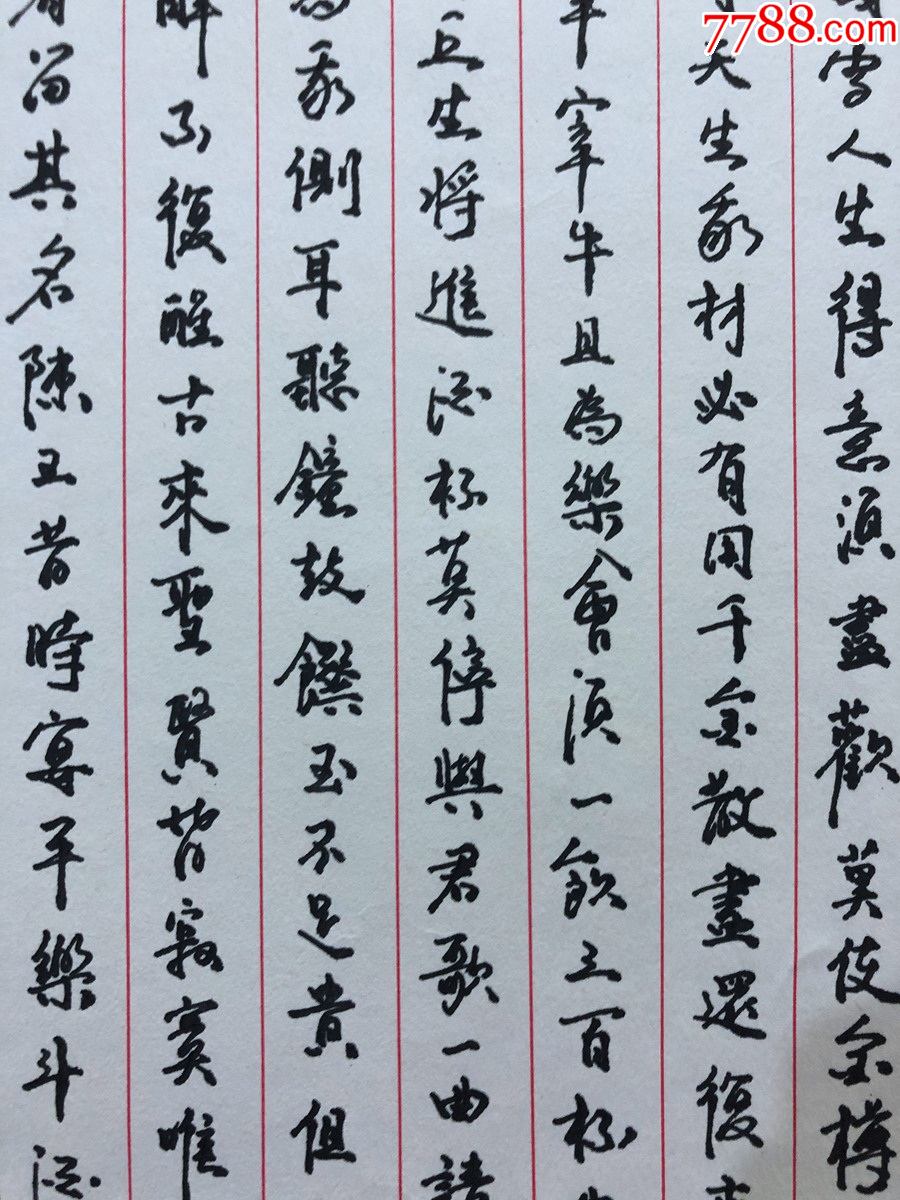 7788.com
雪人生得意須盡歡莫使金樽
天生我材必有用千金散盡還復來
羊宰牛且為樂會須一飲三百杯
丘生將進酒杯莫停與君歌一曲請
為我側耳聽鐘鼓饌玉不足貴但
醉不復醒古來聖賢皆寂寞唯
有留其名陳王昔時宴平樂斗酒